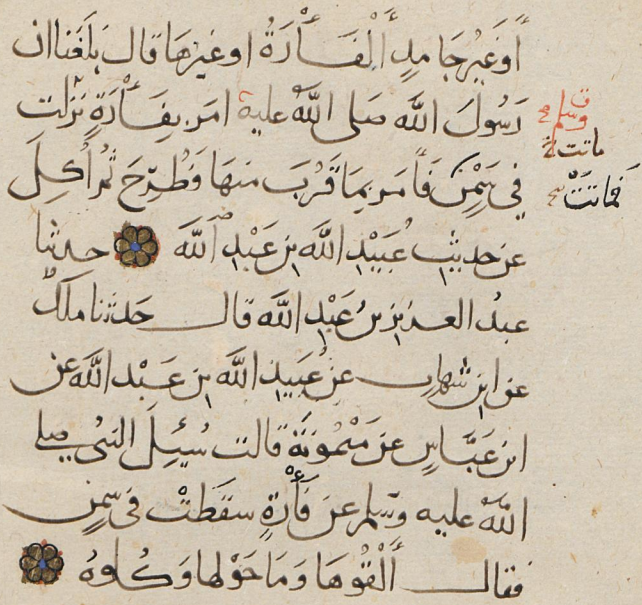 أَوْ غَيْرُ جَامِدٍ الْفَأْرَةُ أو غيرها قال بَلَغَنا ان
رَسُولَ الله صَلى الله عليه امر بِفَأْرَةٍ نزلت
وسلم
ماتت
في سَمْنٍ فَأمر بِمَا قَرُبَ منها فَطُرِحَ ثُمَّ أُكِلَ
فماتت
عن حديث عُبَيْدِ الله بن عَبْدِ الله حدثنا
عبدُ العزيز بنُ عَبْدِ الله قال حدثنا ملك
عن ابن شهاب عن عُبَيدِ الله بن عَبْد الله عن
ابن عَبَّاسٍ عن مَيْمُونَةَ قالت سُئِلَ النبي صلى
الله عليه وسلم عن فَأْرةٍ سَقَطَتْ في سمنٍ
فقال أَلْقُوهَا وَمَا حَوْلها وَكُلوهُ